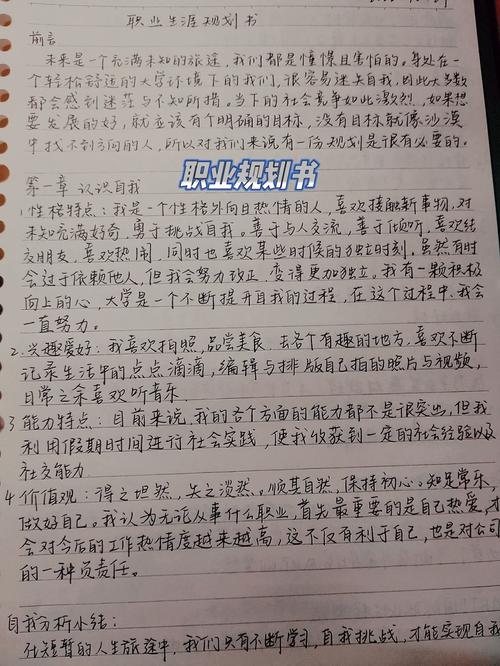 职业生涯规划书
前言
未来是一个充满未知的旅途，我们都是憧憬且害怕的。身处在一
个轻松舒适的大学环境下的我们，很容易迷失自我，因此大多数
都会感到迷茫与不知所措。当下的社会竞争如此激烈，如果想
要发展的好，就应该有个明确的目标，没有目标就像沙漠
中找不到方向的人，所以对我们来说有一份规划是很有必要的。
职业规划书
第一章 认识自我
1.性格特点：我是一个性格外向且热情的人，喜欢接触新事物，对
未知充满好奇，勇于挑战自我。善于与人交流，善于倾听，喜欢结
交朋友，喜欢热闹，同时也喜欢某些时候的独立时刻。虽然有时
会过于依赖他人，但我会努力改正，变得更加独立。我有一颗积极
向上的心，大学是一个不断提升自我的过程，在这个过程中，我会
一直努力。
2.兴趣爱好：我喜欢拍照，品尝美食，去各个有趣的地方，喜欢不断
记录生活中的点点滴滴，编辑与排版自己拍的照片与视频，
日常之余喜欢听音乐.
3.能力特点：目前来说，我的各个方面的能力都不是很突出，但我
利用假期时间进行社会实践，使我收获到一定的社会经验以及
社交能力
4.价值观：得之坦然，失之淡然。顺其自然，保持初心。知足常乐，
做好自己。我认为无论从事什么职业，首先最重要的是自己热爱，才
会对今后的工作热情度越来越高，这不仅有利于自己，也是对公司
的一种负责任。
自我分析小结：
在短暂的人生旅途中，我们只有不断学习，自我挑战，才能实现自我